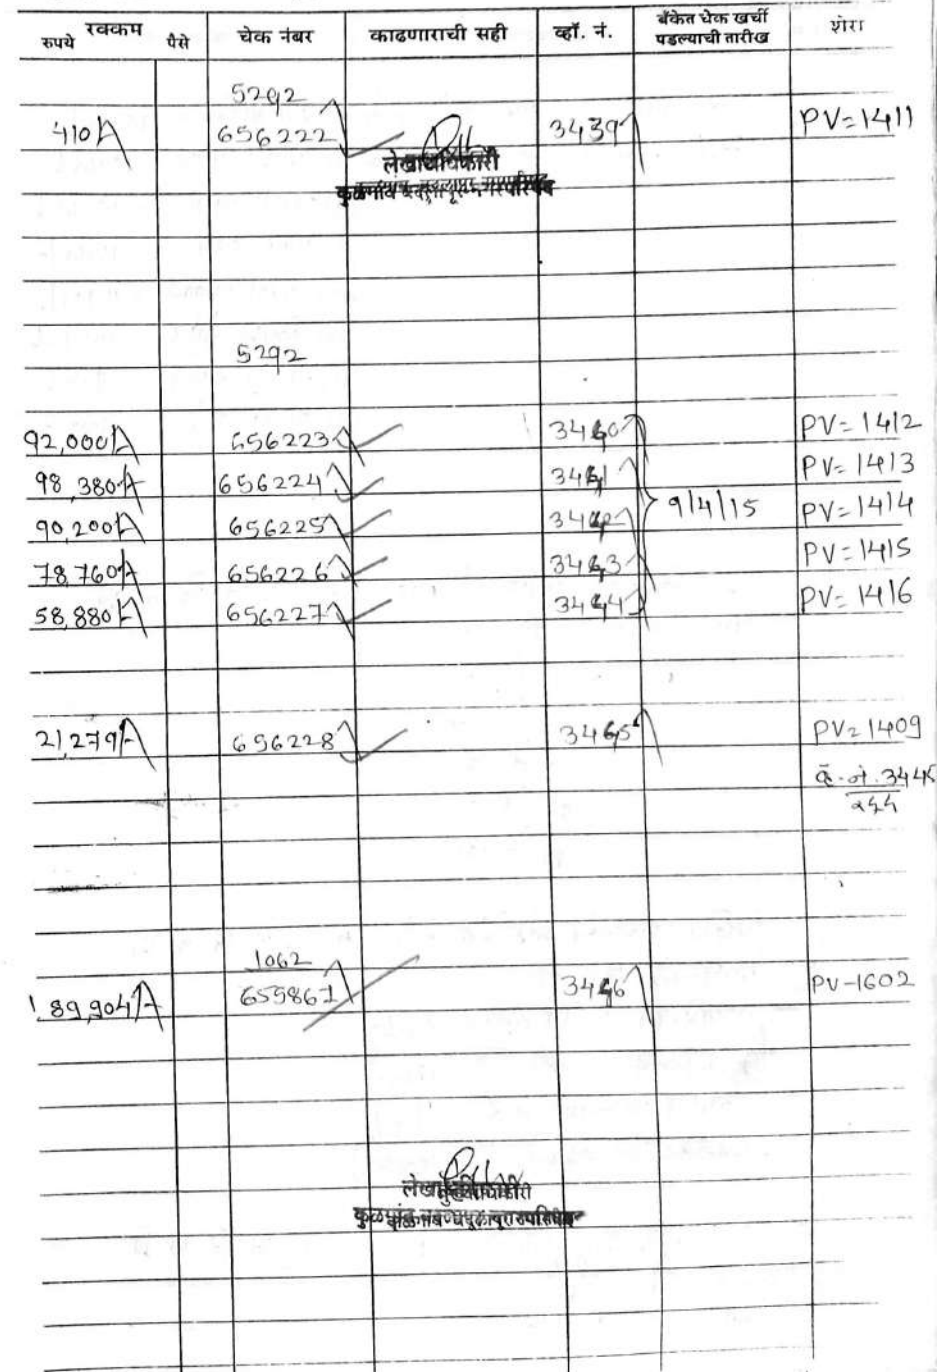 रक्कम
रुपये पैसे चेक नंबर काढणाराची सही व्हॉ. नं. बँकेत चेक खर्ची पडल्याची तारीख शेरा
5292
410/- 656222 3439 PV=1411
लेखाधिकारी
5292
92,000/- 656223 3440 PV=1412
98,380/- 656224 3441 PV=1413
90,200/- 656225 3442 9/4/15 PV=1414
78,760/- 656226 3443 PV=1415
58,880/- 656227 3444 PV=1416
21,279/- 656228 3445 PV=1409
3445
1062
1,89,904/- 659861 3446 PV-1602